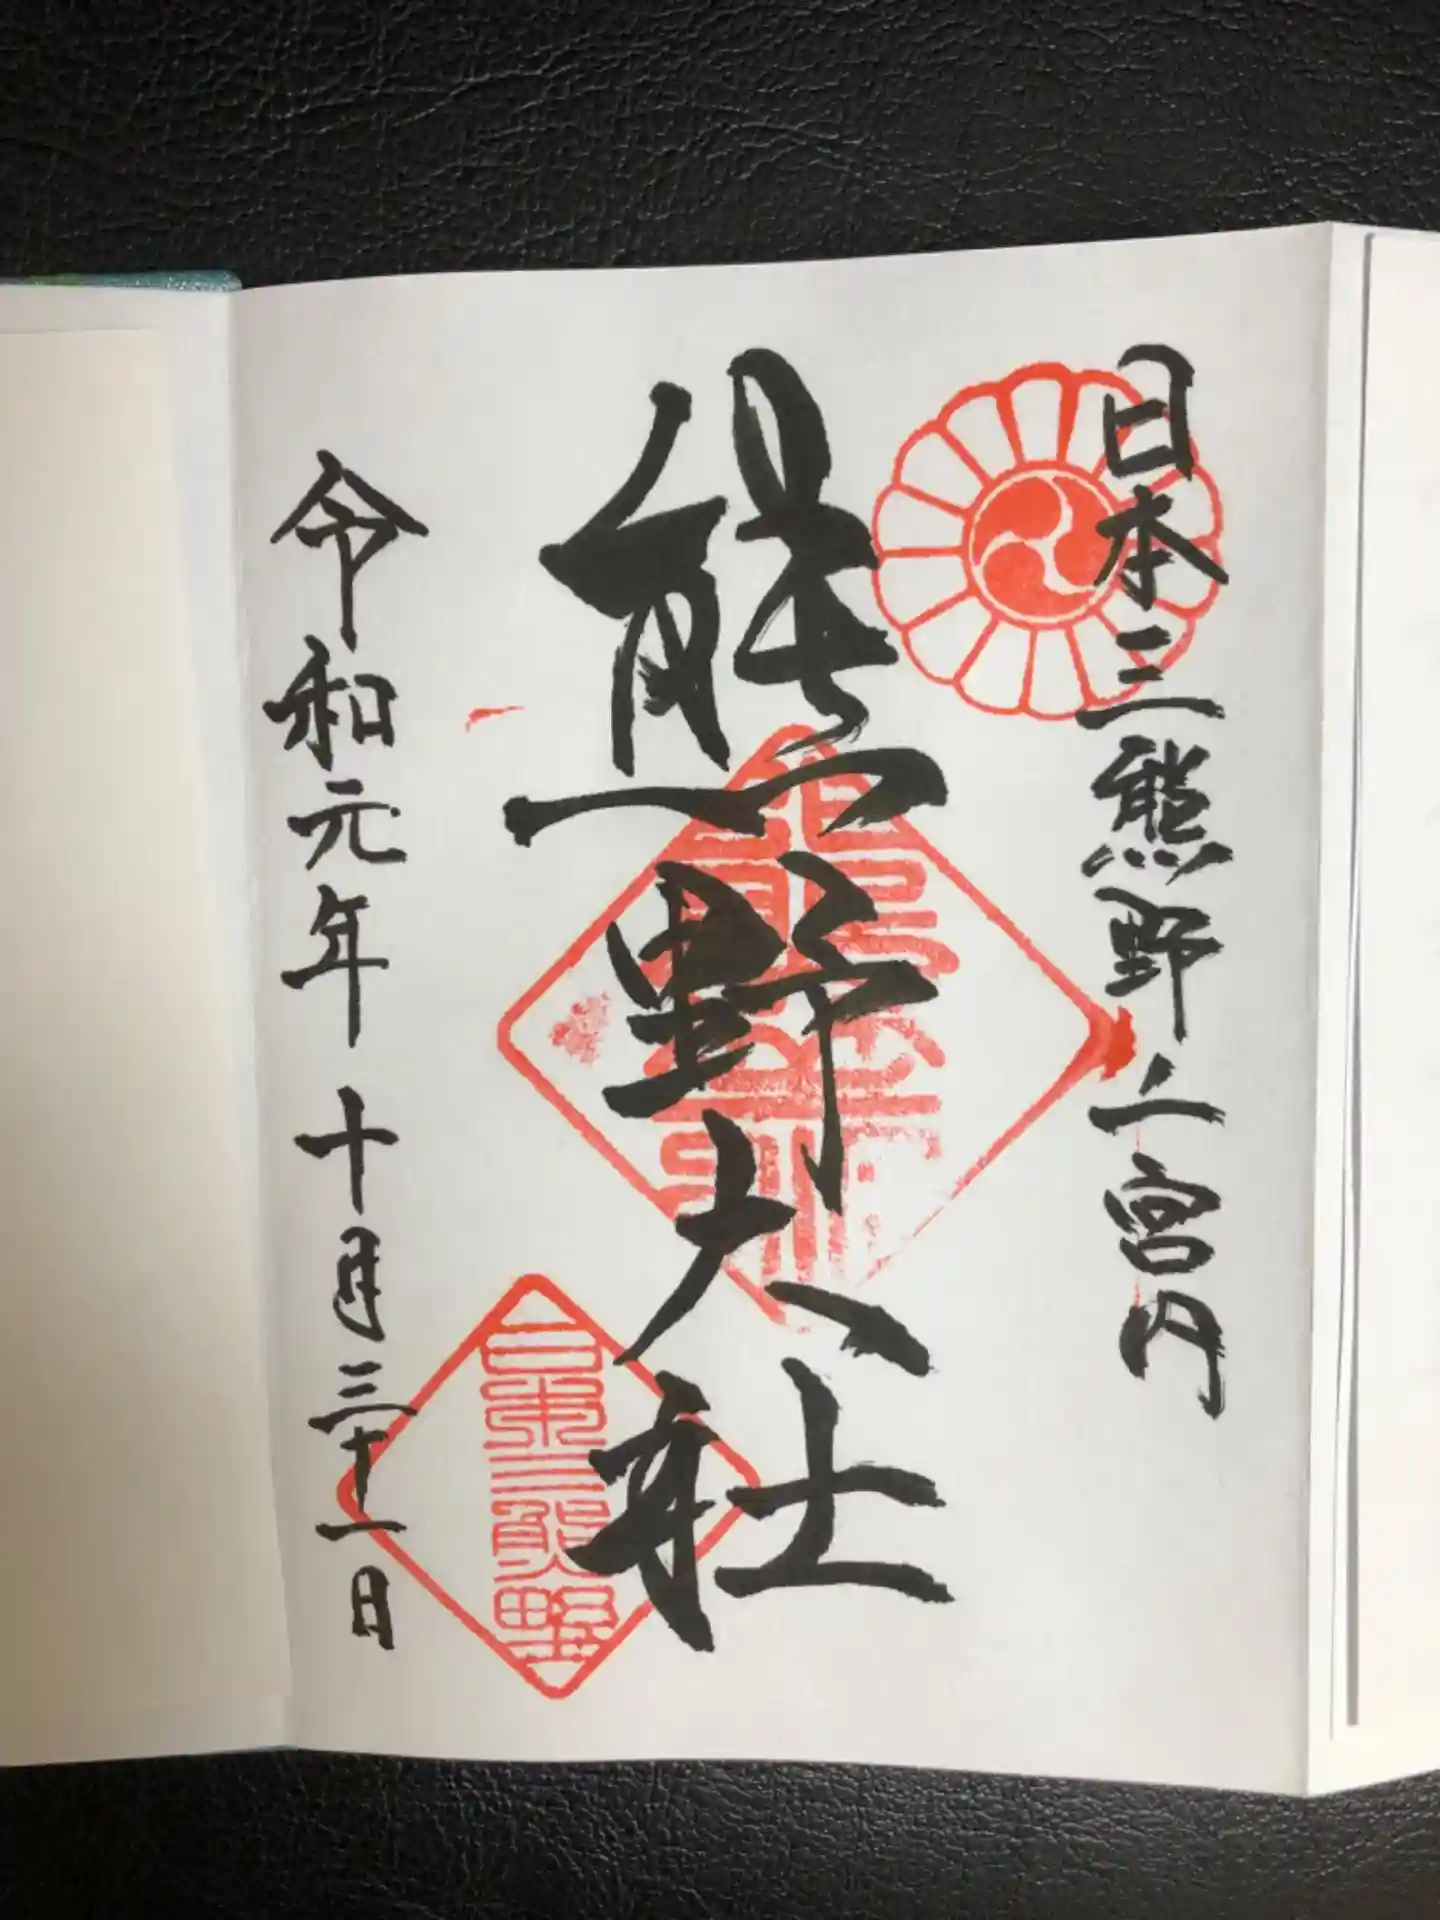 日本三熊野 宮内
熊野大社
日本三熊野
令和元年 十月三十一日